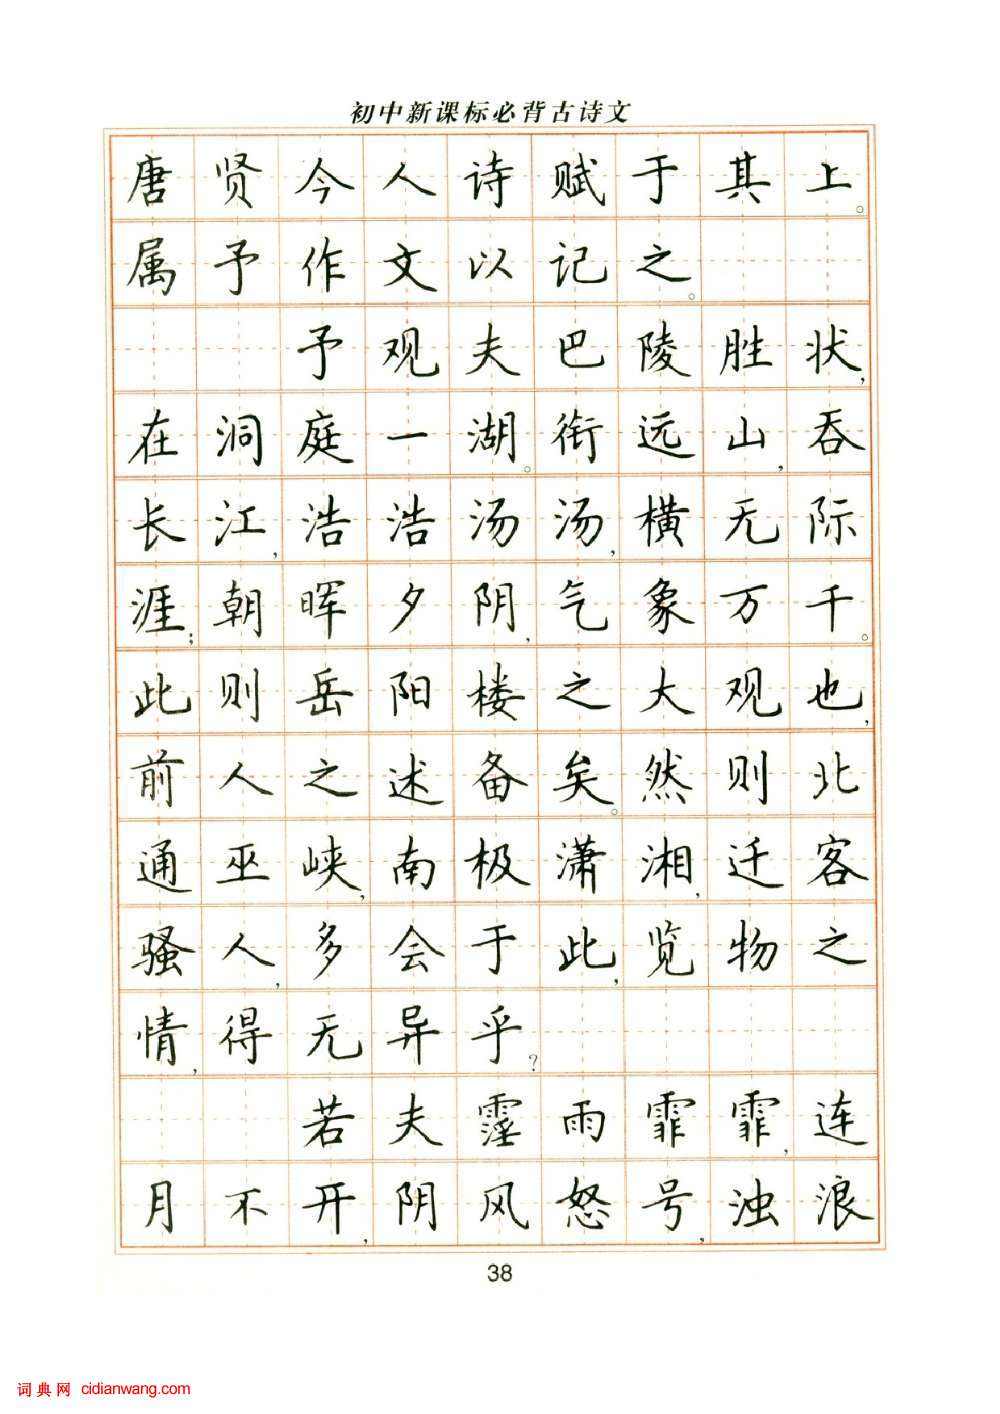 初中新课标必背古诗文
唐贤今人诗赋于其上。
属予作文以记之。
予观夫巴陵胜状，
在洞庭一湖。衔远山，吞
长江，浩浩汤汤，横无际
涯；朝晖夕阴，气象万千。
此则岳阳楼之大观也，
前人之述备矣。然则北
通巫峡，南极潇湘，迁客
骚人，多会于此，览物之
情，得无异乎？
若夫霪雨霏霏，连
月不开，阴风怒号，浊浪
38
词典网 cidianwang.com